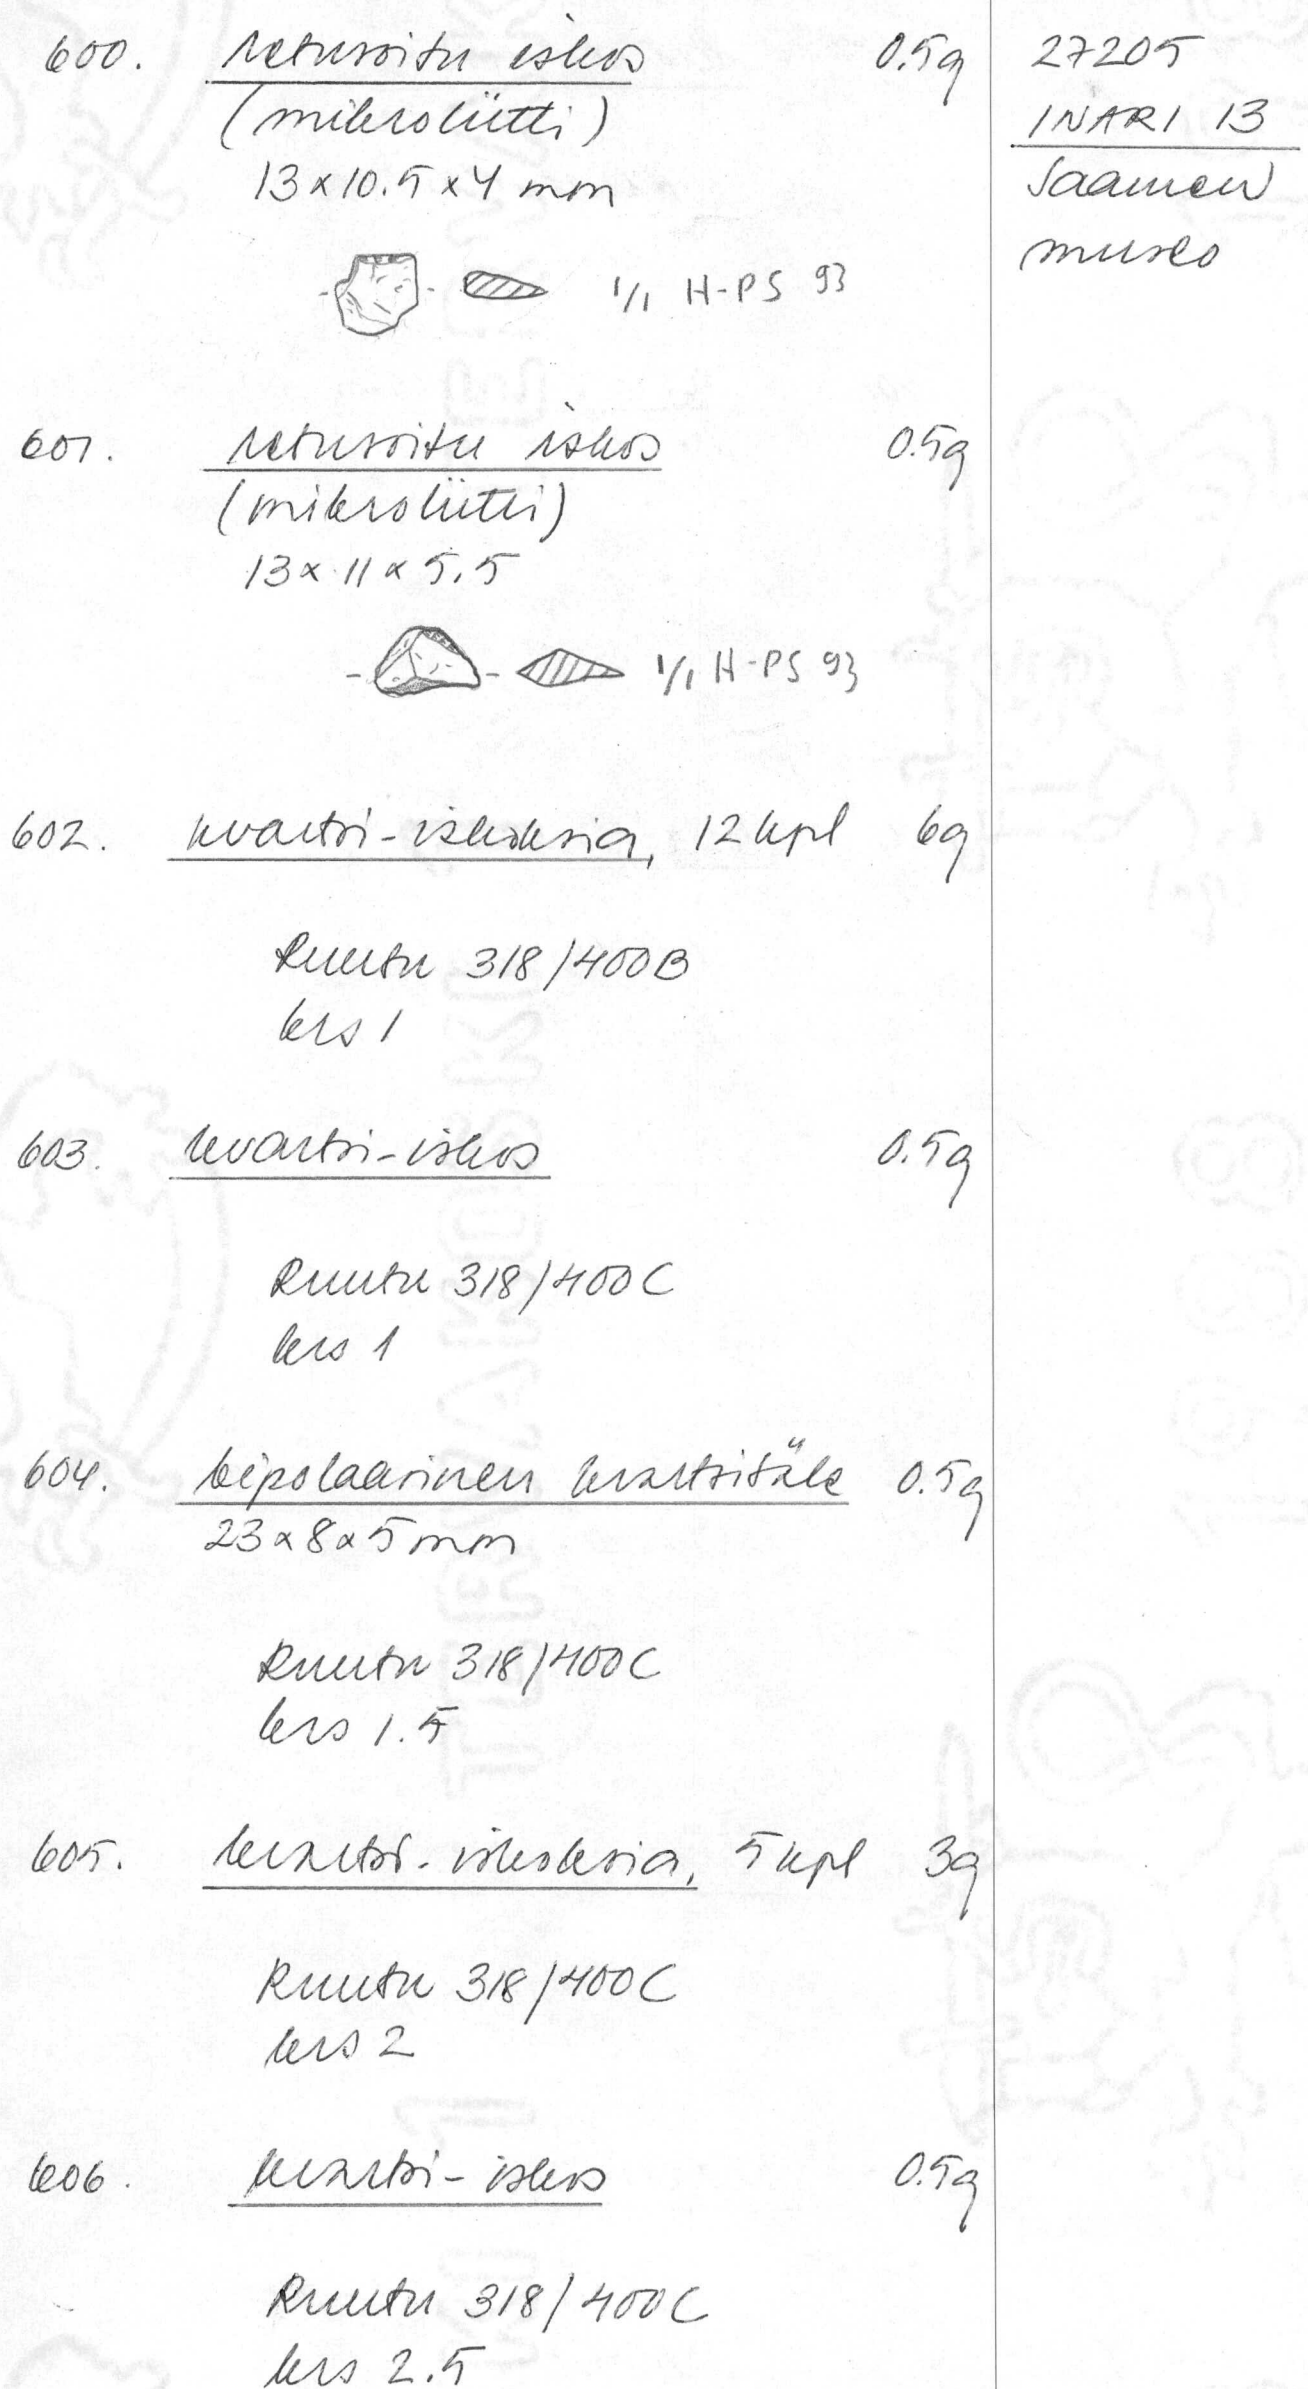 600. retusoitu iskos 0.5g
(mikroliitti)
13 x 10.5 x 4 mm
1/1 H-PS 93
601. retusoitu iskos 0.5g
(mikroliitti)
13 x 11 x 5.5
1/1 H-PS 93
602. kvartsi-iskoksia, 12 kpl 6g
Ruutu 318/400B
krs 1
603. kvartsi-iskos 0.5g
Ruutu 318/400C
krs 1
604. bipolaarinen kvartsisäle 0.5g
23 x 8 x 5 mm
Ruutu 318/400C
krs 1.5
605. kvartsi-iskoksia, 5 kpl 3g
Ruutu 318/400C
krs 2
606. kvartsi-iskos 0.5g
Ruutu 318/400C
krs 2.5
27205
INARI 13
Saamen
museo